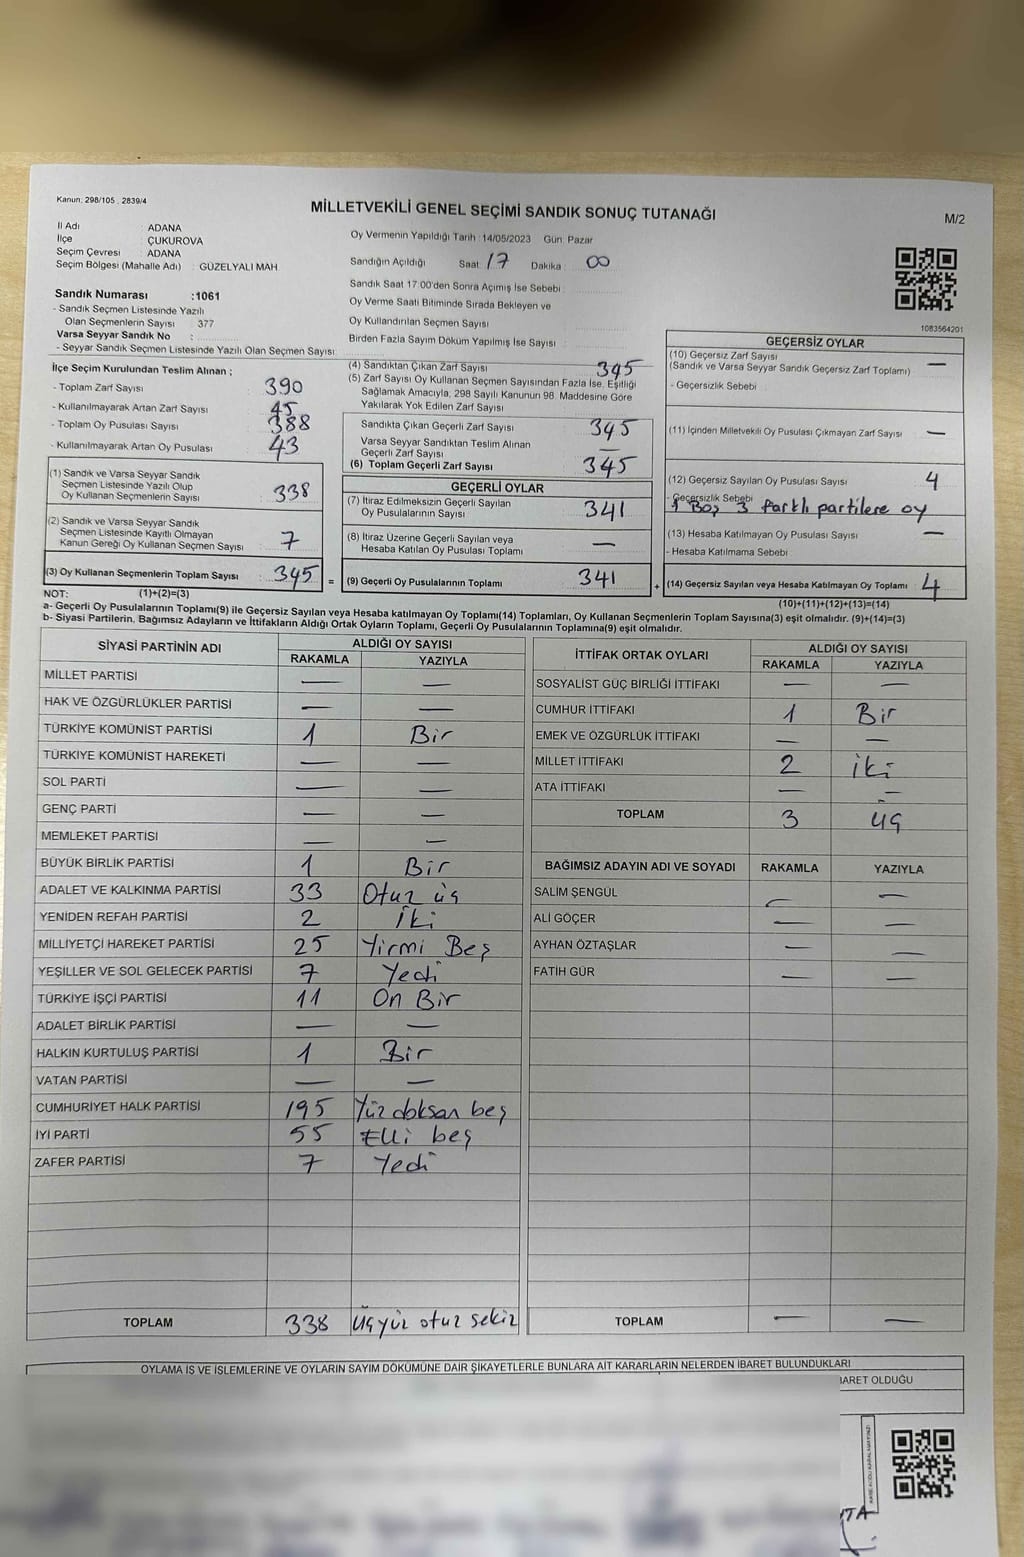 Kanun: 298/105 , 2839/4
MİLLETVEKİLİ GENEL SEÇİMİ SANDIK SONUÇ TUTANAĞI
M/2
İl Adı : ADANA
İlçe : ÇUKUROVA
Seçim Çevresi : ADANA
Seçim Bölgesi (Mahalle Adı) : GÜZELYALI MAH
Oy Vermenin Yapıldığı Tarih :14/05/2023 Gün: Pazar
Sandığın Açıldığı Saat : 17 Dakika : 00
Sandık Saat 17:00'den Sonra Açımış İse Sebebi :
Oy Verme Saati Bitiminde Sırada Bekleyen ve
Oy Kullandırılan Seçmen Sayısı :
Birden Fazla Sayım Döküm Yapılmış İse Sayısı :
Sandık Numarası :1061
- Sandık Seçmen Listesinde Yazılı
Olan Seçmenlerin Sayısı : 377
Varsa Seyyar Sandık No :
- Seyyar Sandık Seçmen Listesinde Yazılı Olan Seçmen Sayısı:
1083564201
İlçe Seçim Kurulundan Teslim Alınan ;
- Toplam Zarf Sayısı : 390
- Kullanılmayarak Artan Zarf Sayısı : 45
- Toplam Oy Pusulası Sayısı : 388
- Kullanılmayarak Artan Oy Pusulası : 43
(1) Sandık ve Varsa Seyyar Sandık
Seçmen Listesinde Yazılı Olup
Oy Kullanan Seçmenlerin Sayısı : 338
(2) Sandık ve Varsa Seyyar Sandık
Seçmen Listesinde Kayıtlı Olmayan
Kanun Gereği Oy Kullanan Seçmen Sayısı : 7
(3) Oy Kullanan Seçmenlerin Toplam Sayısı : 345 =
(4) Sandıktan Çıkan Zarf Sayısı : 345
(5) Zarf Sayısı Oy Kullanan Seçmen Sayısından Fazla İse, Eşitliği
Sağlamak Amacıyla, 298 Sayılı Kanunun 98. Maddesine Göre
Yakılarak Yok Edilen Zarf Sayısı :
Sandıkta Çıkan Geçerli Zarf Sayısı : 345
Varsa Seyyar Sandıktan Teslim Alınan
Geçerli Zarf Sayısı : —
(6) Toplam Geçerli Zarf Sayısı : 345
GEÇERLİ OYLAR
(7) İtiraz Edilmeksizin Geçerli Sayılan
Oy Pusulalarının Sayısı : 341
(8) İtiraz Üzerine Geçerli Sayılan veya
Hesaba Katılan Oy Pusulası Toplamı : —
(9) Geçerli Oy Pusulalarının Toplamı : 341 +
GEÇERSİZ OYLAR
(10) Geçersiz Zarf Sayısı : —
(Sandık ve Varsa Seyyar Sandık Geçersiz Zarf Toplamı)
- Geçersizlik Sebebi :
(11) İçinden Milletvekili Oy Pusulası Çıkmayan Zarf Sayısı : —
(12) Geçersiz Sayılan Oy Pusulası Sayısı : 4
- Geçersizlik Sebebi :
1 Boş 3 farklı partilere oy
(13) Hesaba Katılmayan Oy Pusulası Sayısı : —
- Hesaba Katılmama Sebebi :
(14) Geçersiz Sayılan veya Hesaba Katılmayan Oy Toplamı : 4
NOT: (1)+(2)=(3) (10)+(11)+(12)+(13)=(14)
a- Geçerli Oy Pusulalarının Toplamı(9) ile Geçersiz Sayılan veya Hesaba katılmayan Oy Toplamı(14) Toplamları, Oy Kullanan Seçmenlerin Toplam Sayısına(3) eşit olmalıdır. (9)+(14)=(3)
b- Siyasi Partilerin, Bağımsız Adayların ve İttifakların Aldığı Ortak Oyların Toplamı, Geçerli Oy Pusulalarının Toplamına(9) eşit olmalıdır.
SİYASİ PARTİNİN ADI ALDIĞI OY SAYISI
RAKAMLA YAZIYLA
MİLLET PARTİSİ — —
HAK VE ÖZGÜRLÜKLER PARTİSİ — —
TÜRKİYE KOMÜNİST PARTİSİ 1 Bir
TÜRKİYE KOMÜNİST HAREKETİ — —
SOL PARTİ — —
GENÇ PARTİ — —
MEMLEKET PARTİSİ — —
BÜYÜK BİRLİK PARTİSİ 1 Bir
ADALET VE KALKINMA PARTİSİ 33 Otuz üç
YENİDEN REFAH PARTİSİ 2 İki
MİLLİYETÇİ HAREKET PARTİSİ 25 Yirmi Beş
YEŞİLLER VE SOL GELECEK PARTİSİ 7 Yedi
TÜRKİYE İŞÇİ PARTİSİ 11 On Bir
ADALET BİRLİK PARTİSİ — —
HALKIN KURTULUŞ PARTİSİ 1 Bir
VATAN PARTİSİ — —
CUMHURİYET HALK PARTİSİ 195 Yüz doksan beş
İYİ PARTİ 55 Elli beş
ZAFER PARTİSİ 7 Yedi
TOPLAM 338 Üçyüz otuz sekiz
İTTİFAK ORTAK OYLARI ALDIĞI OY SAYISI
RAKAMLA YAZIYLA
SOSYALİST GÜÇ BİRLİĞİ İTTİFAKI — —
CUMHUR İTTİFAKI 1 Bir
EMEK VE ÖZGÜRLÜK İTTİFAKI — —
MİLLET İTTİFAKI 2 İki
ATA İTTİFAKI — —
TOPLAM 3 üç
BAĞIMSIZ ADAYIN ADI VE SOYADI RAKAMLA YAZIYLA
SALİM ŞENGÜL — —
ALİ GÖÇER — —
AYHAN ÖZTAŞLAR — —
FATİH GÜR — —
TOPLAM — —
OYLAMA İŞ VE İŞLEMLERİNE VE OYLARIN SAYIM DÖKÜMÜNE DAİR ŞİKAYETLERLE BUNLARA AİT KARARLARIN NELERDEN İBARET BULUNDUKLARI
İBARET OLDUĞU